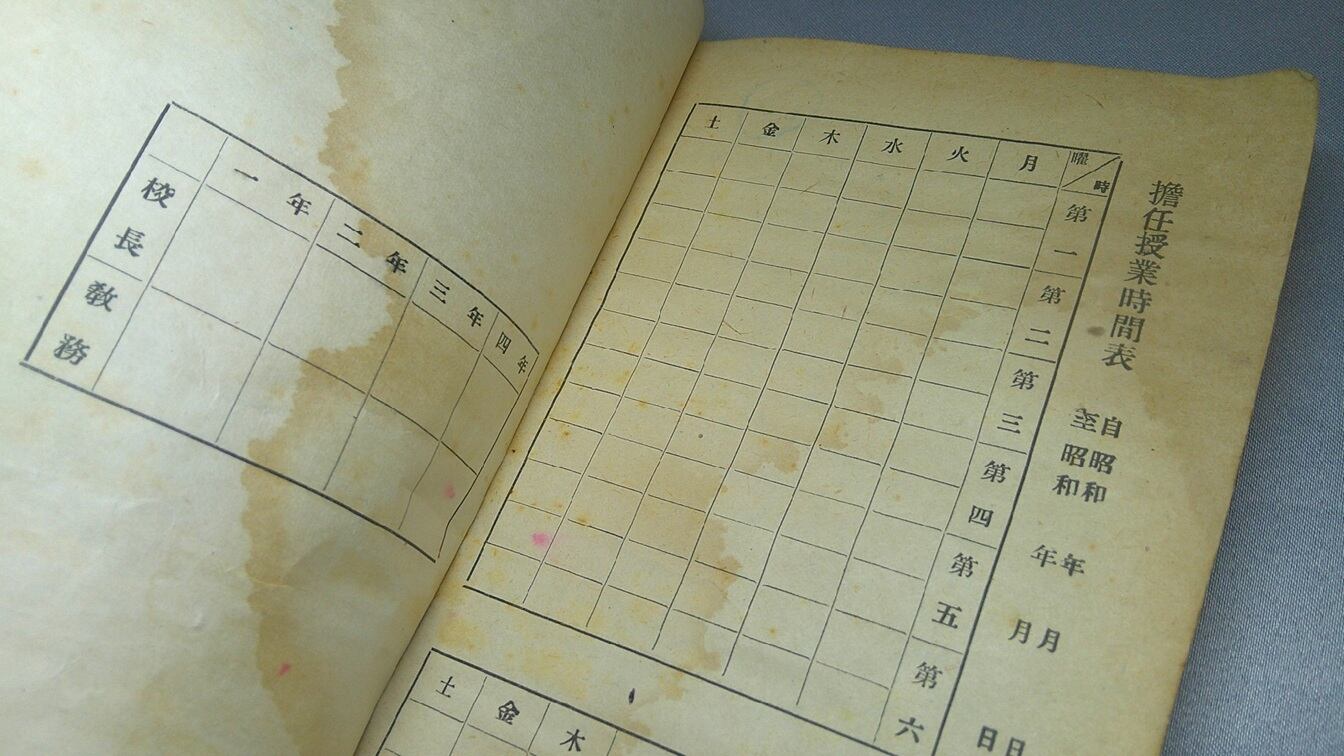 擔任授業時間表
自昭和 年 月 日
至昭和 年 月 日
曜 時
月 火 水 木 金 土
第一
第二
第三
第四
第五
第六
土 金 木
一年 二年 三年 四年
校長
教務